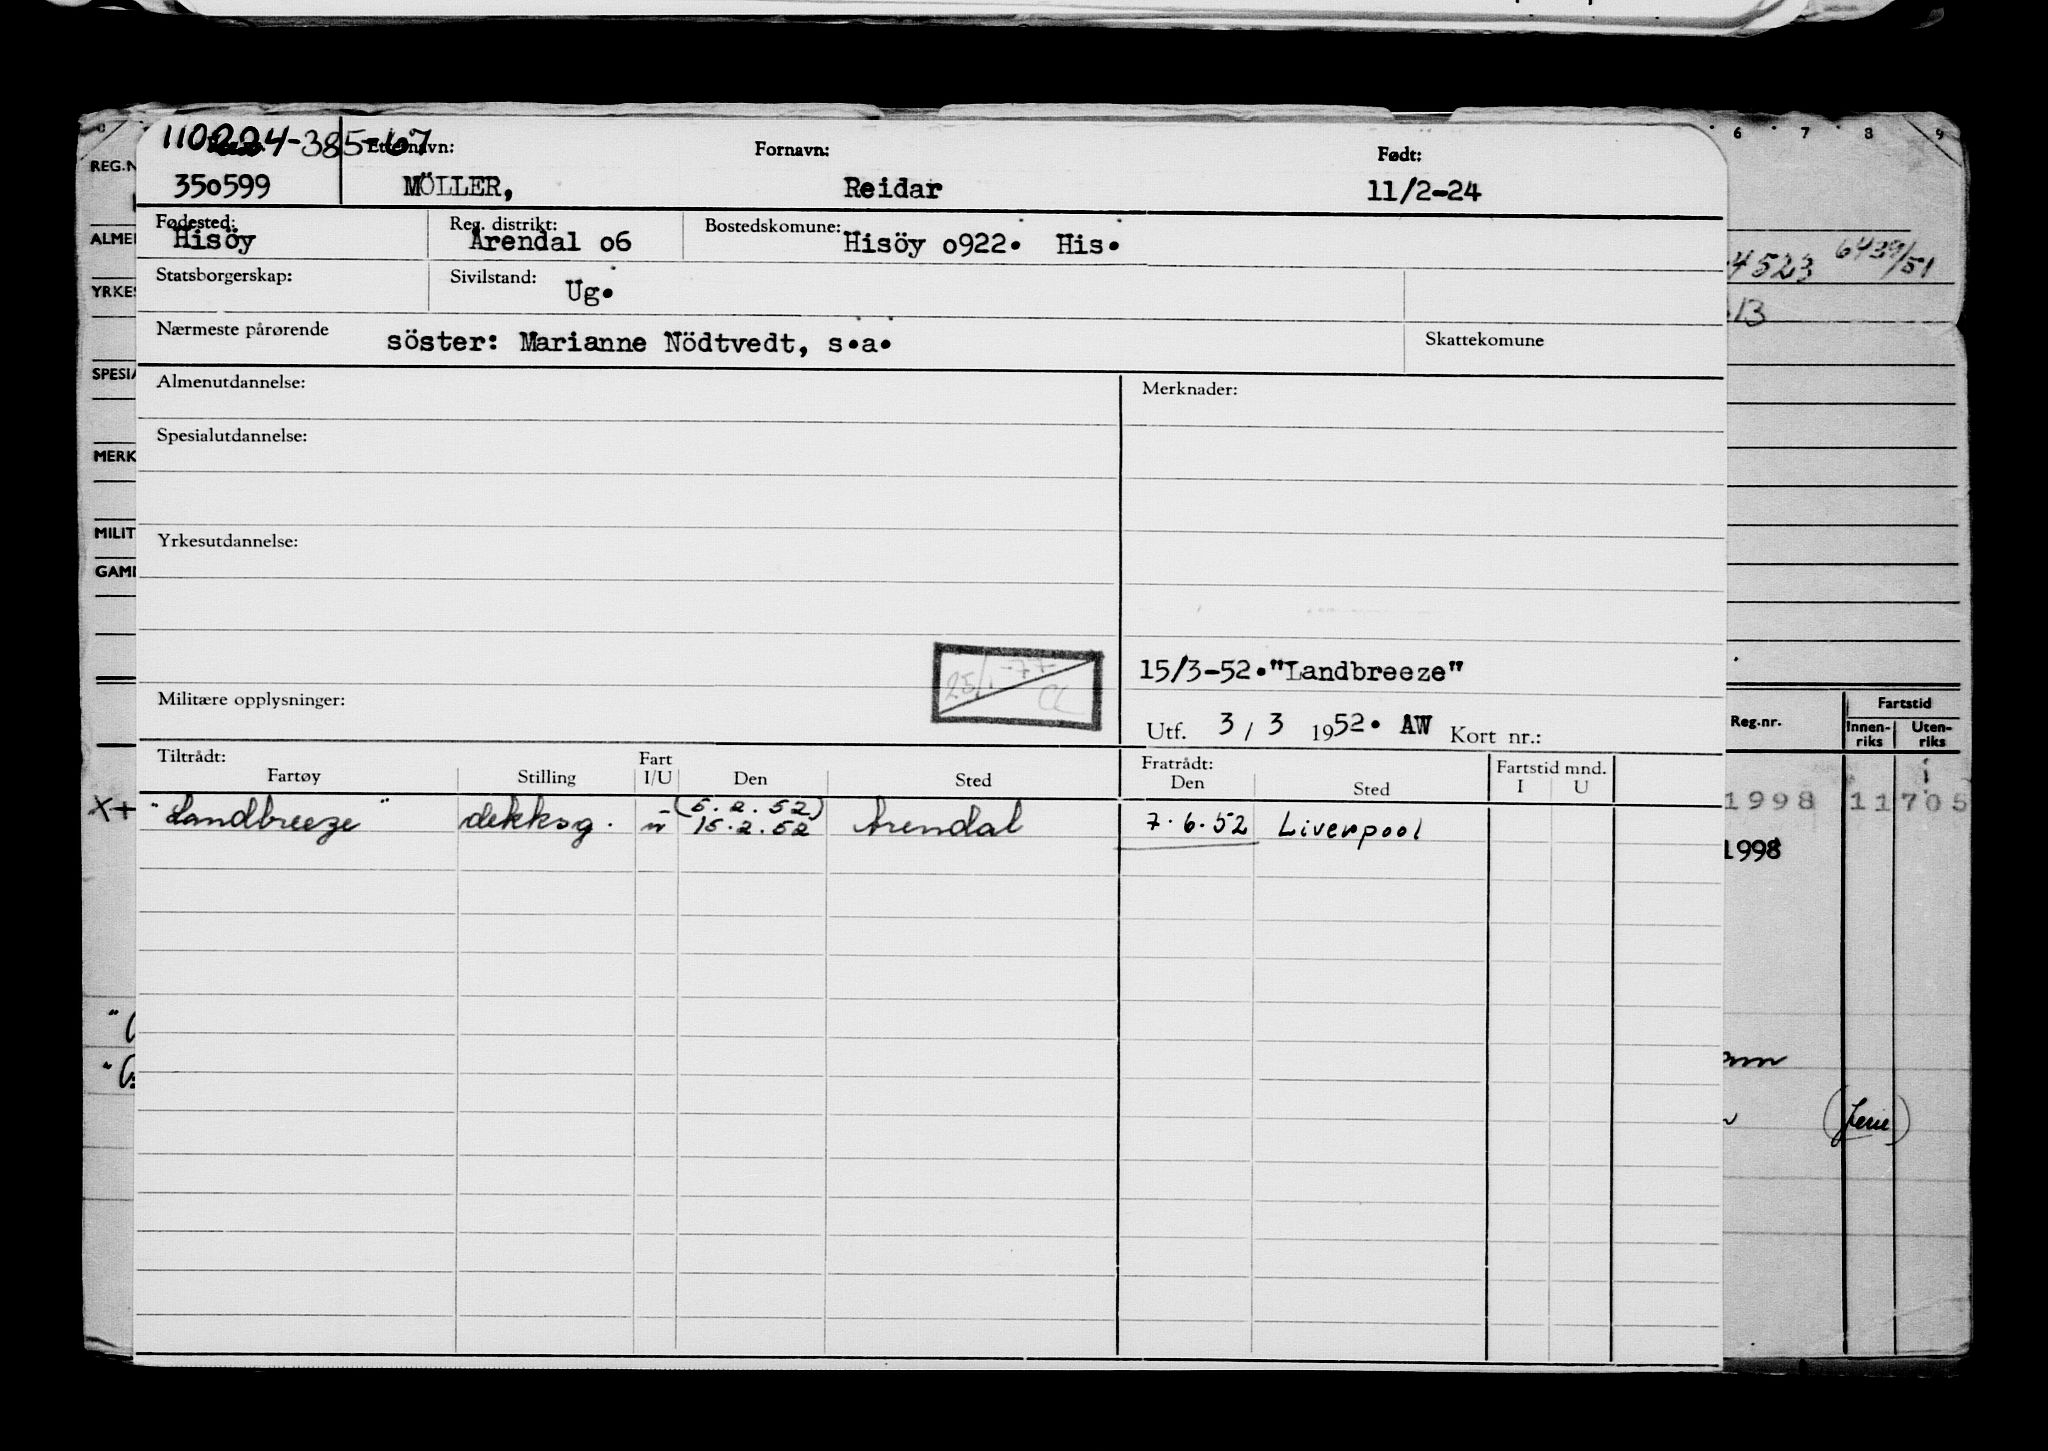 110224-385-67
Etternavn: Fornavn: Født:
350599 MÖLLER, Reidar 11/2-24
Fødested: Reg. distrikt: Bostedskomune:
Hisöy Arendal o6 Hisöy o922. His.
Statsborgerskap: Sivilstand: Ug.
Nærmeste pårørende söster: Marianne Nödtvedt, s.a. Skattekomune
Almenutdannelse: Merknader:
Spesialutdannelse:
Yrkesutdannelse:
25/1-77
15/3-52."Landbreeze"
Militære opplysninger:
Utf. 3 / 3 1952. AW Kort nr.:
Tiltrådt: Fart Fratrådt: Fartstid mnd.
Fartøy Stilling I/U Den Sted Den Sted I U
(5.2.52)
"Landbreeze" dekksg. u 15.2.52 Arendal 7.6.52 Liverpool
REG.N
ALME
YRKES
SPESIA
MERK
MILIT
GAM
X+
6 7 8 9
4523 6439/51
13
Fartstid
Reg.nr. Innen-riks Uten-riks
1998 11705
1998
(ferie)